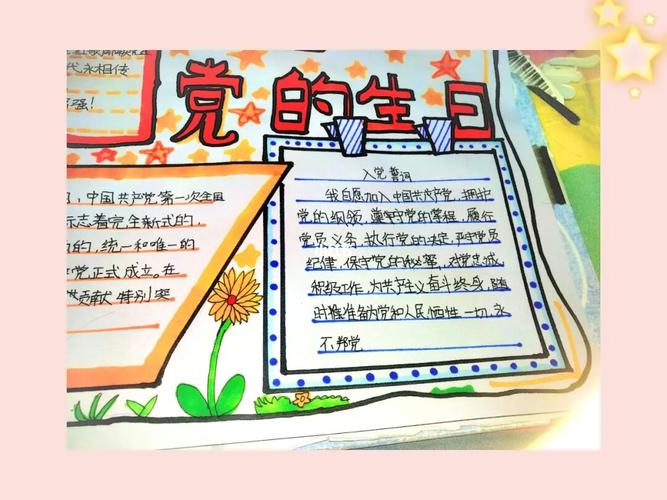 代永相传
强!
党的生日
，中国共产党第一次全国
志着完全新式的,
的，统一和唯一的
党正式成立。在
贡献特别突
入党誓词
我自愿加入中国共产党，拥护
党的纲领，遵守党的章程，履行
党员义务，执行党的决定，严守党员
纪律，保守党的秘密，对党忠诚，
积极工作，为共产主义奋斗终身，随
时准备为党和人民牺牲一切，永
不叛党